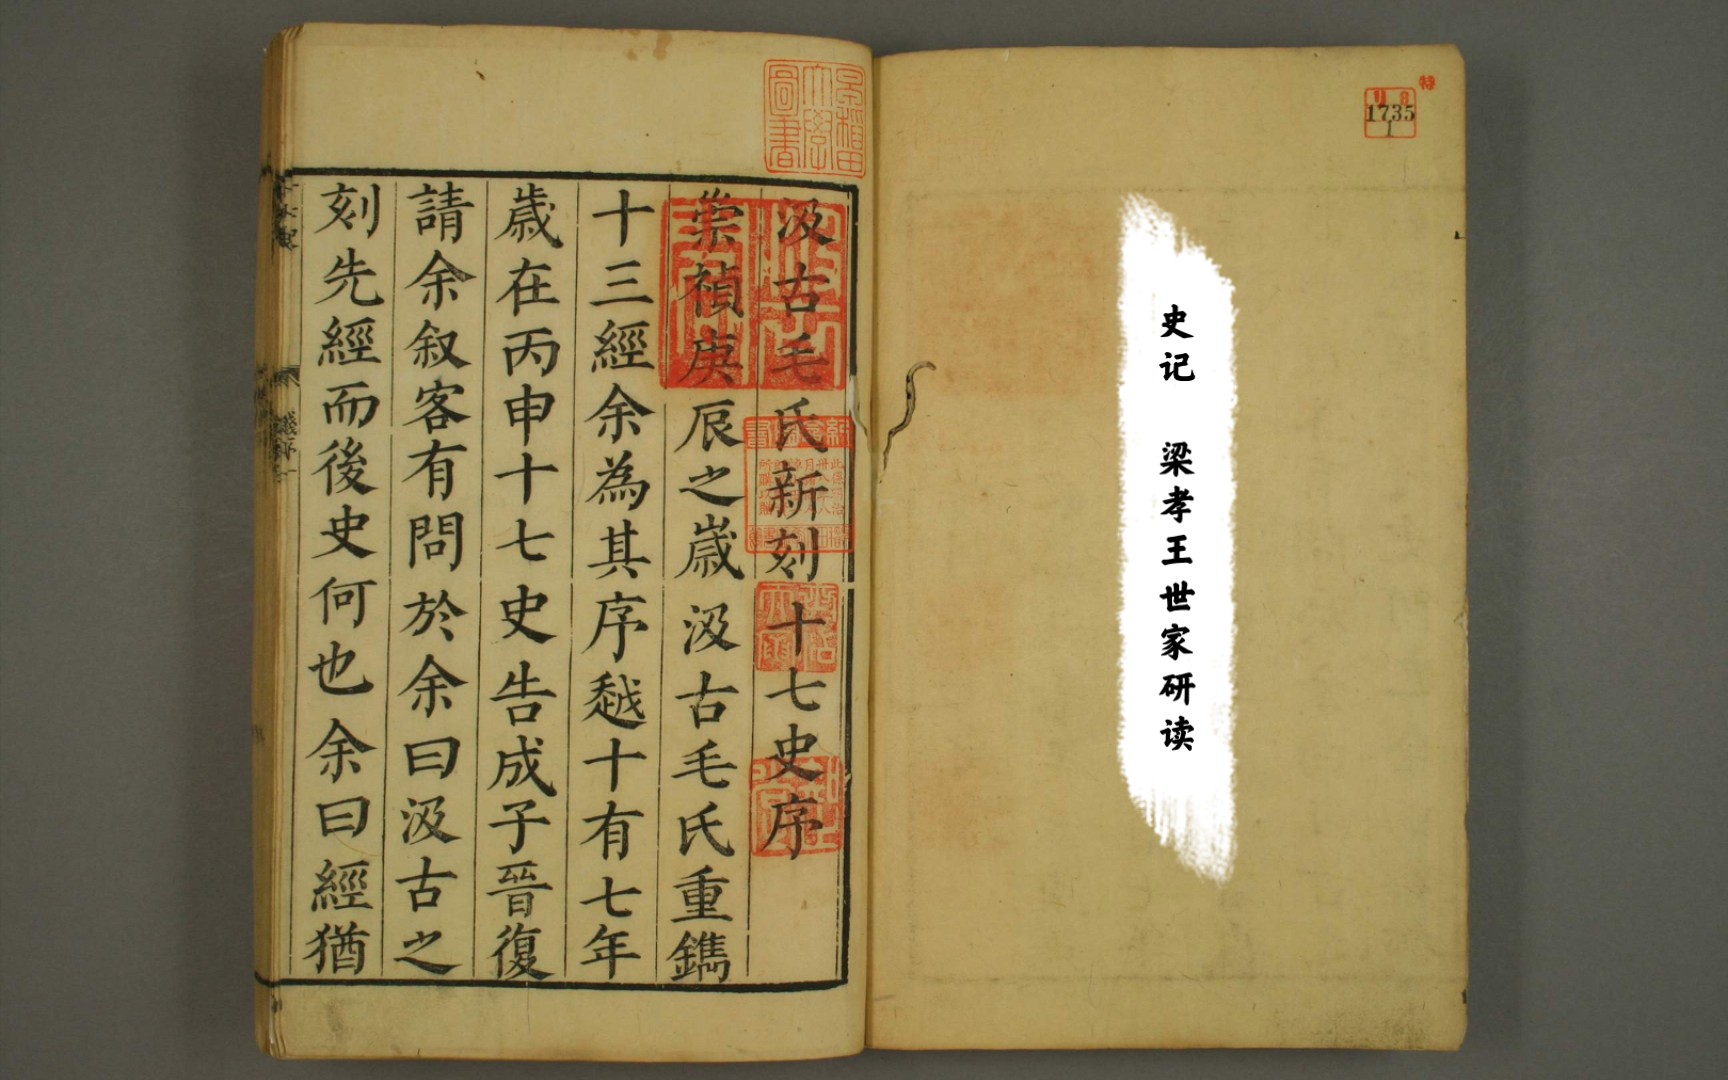 汲古毛氏新刻十七史序
崇禎庚辰之歲汲古毛氏重鐫
十三經余為其序越十有七年
歲在丙申十七史告成子晉復
請余叙客有問於余曰汲古之
刻先經而後史何也余曰經猶
早稲田大學圖書
特
リ 8
1735
1
史记 梁孝王世家研读